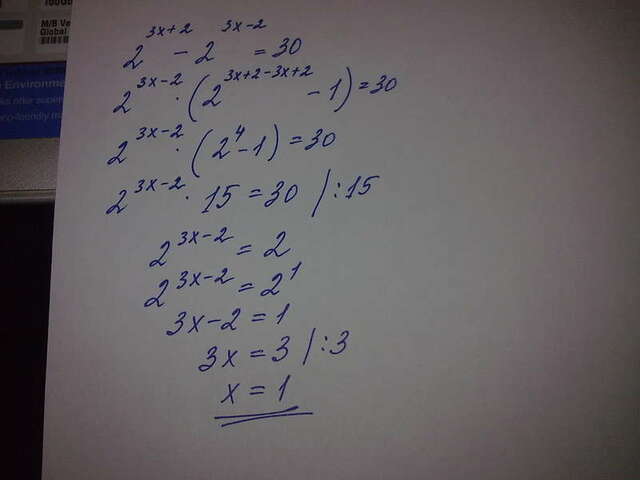 100GB
M/B Ve
Global
Environmen
2^{3x+2} - 2^{3x-2} = 30
2^{3x-2} · (2^{3x+2-3x+2} - 1) = 30
2^{3x-2} · (2^4 - 1) = 30
2^{3x-2} · 15 = 30 /:15
2^{3x-2} = 2
2^{3x-2} = 2^1
3x - 2 = 1
3x = 3 /:3
x = 1